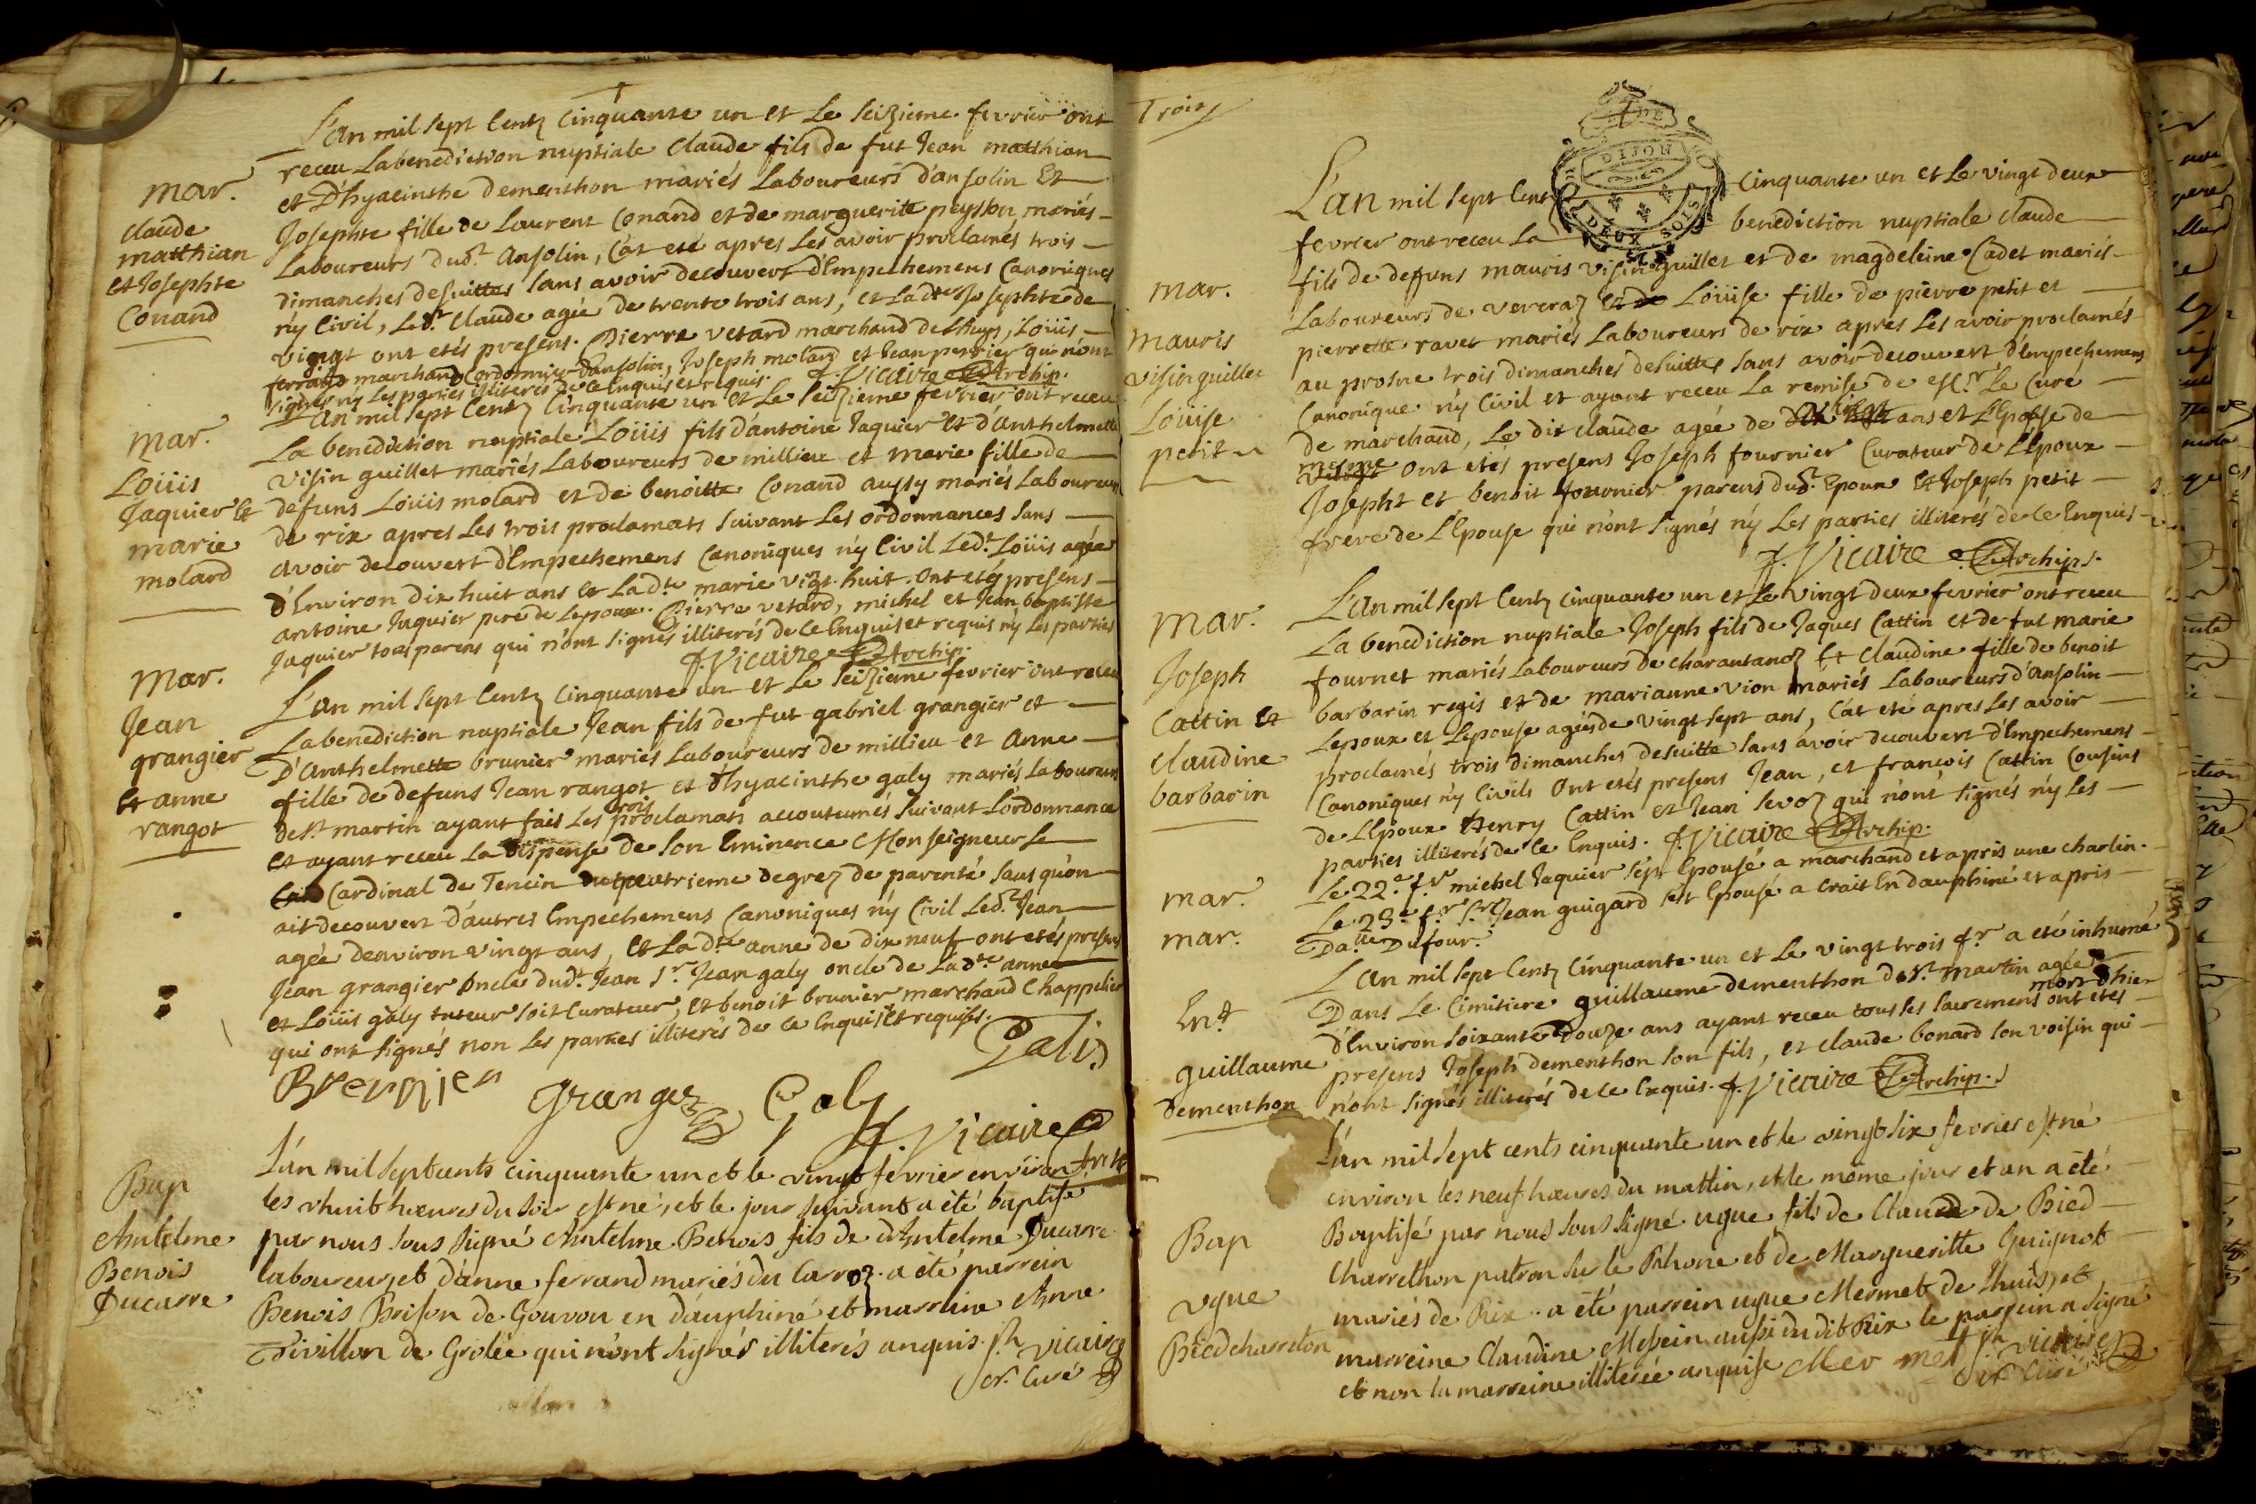 L'an mil sept Centz Cinquante un et Le seizieme fevrier ont
receu La benediction nuptiale Claude fils de fut Jean matthian
et D'hyacinthe dementhon mariés Laboureurs d'ansolin Et
Josephte fille de Laurent Conand et de marguerite peysson mariés
Laboureurs dud.t Ansolin, C'at eté apres Les avoir proclamés trois
dimanches desuittes sans avoir decouvert d'Empechemens Canoniques
n'y Civil, Led.t Claude agée de trente trois ans, et Lad.te Josephte de
vingt ont etés presens. Pierre vetard marchand de Lhuys, Loüis
ferrand marchand Cordonnier d'ansolin, Joseph molard et Jean perrier qui n'ont
signés n'y Les parties illiterés de Ce Enquis et requis. f. Vicaire Archip.
mar.
Claude
matthian
et Josephte
Conand
L'An mil sept Centz Cinquante un et Le seizieme fevrier ont receu
La benediction nuptiale Loüis fils d'antoine Jaquier et d'anthelmette
visin guillet mariés Laboureurs de millieu et marie fille de
defuns Loüis molard et de benoitte Conand aussy mariés Laboureurs
de rix apres Les trois proclamats suivant Les ordonnances sans
avoir decouvert d'Empechemens Canoniques n'y Civil Led.t Loüis agée
d'Environ dix huit ans et Lad.te marie vingt huit. ont etés presens
antoine Jaquier pere de Lepoux. Pierre vetard, michel et Jean baptiste
Jaquier tous parens qui n'ont signés illiterés de Ce Enquis et requis n'y Les parties
f. Vicaire Archip.
mar.
Loüis
Jaquier Et
marie
molard
L'an mil sept Centz Cinquante un et Le seizieme fevrier ont receu
La benediction nuptiale Jean fils de fut gabriel grangier et
D'Anthelmette brunier mariés Laboureurs de millieu et Anne
fille de defuns Jean rangot et d'hyacinthe galy mariés Laboureurs
de St martin ayant fais Les trois proclamats accoutumés suivant L'ordonnance
et ayant receu La dispense de son Eminence Monseigneur Le
Cardinal de Tencin du quatrieme degrez de parenté sans qu'on
ait decouvert d'autres Empechemens Canoniques n'y Civil Led.t Jean
agée denviron vingt ans, et Lad.te anne de dix neuf ont etés presens
Jean grangier oncle dud.t Jean S.r Jean galy oncle de Lad.te anne
et Loüis galy tuteur soit Curateur, et benoit brunier marchand Chappelier
qui ont signés non Les parties illiterés de Ce Enquis et requises.
mar.
Jean
grangier
et anne
rangot
Galy
Grangez
Galy
f. Vicaire
Archip
L'an mil septcents cinquante un et le vingt fevrier environ
les huit heures du soir est né, et le jour suivant a été baptisé
par nous sous signé Antelme Benois fils de d'Antelme Ducarre
laboureur, et d'anne ferrand mariés du Carroz. a été parrein
Benois Brison de Gouvou en dauphiné et marreine Anne
Divillon de Grolée qui n'ont signés illiterés anquis. vicaire
sr. Curé
Bap
Antelme
Benois
Ducarre
Trois
DIJON
DEUX SOLS
L'an mil sept Centz Cinquante un et Le vingt deux
fevrier ont receu La benediction nuptiale Claude
fils de defuns mauris visin guillet et de magdeleine Cadet mariés
Laboureurs de verciaz et Loüise fille de pierre petit et
pierrette ravet mariés Laboureurs de rix apres Les avoir proclamés
au prosne trois dimanches desuittes sans avoir decouvert d'Empechemens
Canonique n'y Civil et ayant receu La remise de Le Curé
de marchand, Le dit Claude agée de vingt ans et L'Epouse de
mesme ont etés presens Joseph fournier Curateur de L'Epoux
Josepht et benoit fournier parens dud.t Epoux et Joseph petit
frere de L'Epouse qui n'ont signés n'y Les parties illiterés de Ce Enquis
f. Vicaire Archip.
mar.
Mauris
visin guillet
Loüise
petit
L'an mil sept Centz Cinquante un et Le vingt deux fevrier ont receu
La benediction nuptiale Joseph fils de Jaques Cattin et de fut marie
fournet mariés Laboureurs de charantanoz Et Claudine fille de benoit
barbarin regis et de marianne vion mariés Laboureurs d'Ansolin
Lepoux et Lepouse agés de vingt sept ans, C'at eté apres Les avoir
proclamés trois dimanches desuitte sans avoir decouvert d'Empechemens
Canoniques n'y Civils Ont etés presens Jean, et francois Cattin Cousins
de L'Epoux Henry Cattin et Jean sevoz qui n'ont signés n'y Les
parties illiterés de Ce Enquis. f. Vicaire Archip.
mar.
Joseph
Cattin Et
Claudine
barbarin
Le 22.e f.r michel Jaquier s'est Epousé a marchand et a pris une charlin.
mar.
Le 23.e f.r S.r Jean guigard s'est Epousé a Crait En dauphiné et a pris
Da.lle Dufour.
mar.
L'An mil sept Centz Cinquante un et Le vingt trois f.r a eté inhumé
Dans Le Cimitiere guillaume dementhon de St martin agée
mort d'hier
d'Environ soixante douze ans ayant receu tous les sacremens ont etés
presens Joseph dementhon son fils, et Claude bonard son voisin qui
n'ont signés illiterés de Ce Enquis. f. Vicaire Archip.
Ent
guillaume
dementhon
L'an mil sept cents cinquante un et le vingt six fevrier est né
environ les neuf heures du mattin, et le même jour et an a été
Baptisé par nous sous signé ugue fils de Claude de Bied
Charrethon patron sur le Rhone et de Margueritte Guignot
mariés de Rix. a été parrein ugue Mermet de Lhuis, et
marreine Claudine Messein aussi du dit Rix le parrein a signé
et non la marreine illiterée anquise Mer met vicaire
sr Curé
Bap
Vgue
Biedcharreton